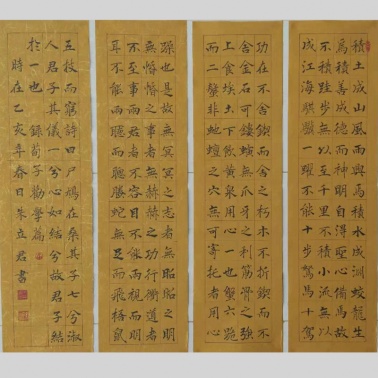 積土成山風雨興焉積水成淵蛟龍生
焉積善成德而神明自得聖心備焉故
不積跬步無以至千里不積小流無以
成江海騏驥一躍不能十步駑馬十駕
功在不舍鍥而舍之朽木不折鍥而不
舍金石可鏤螾無爪牙之利筋骨之強
上食埃土下飲黃泉用心一也蟹六跪
而二螯非蛇蟺之穴無可寄託者用心
躁也是故無冥冥之志者無昭昭之明
無惛惛之事者無赫赫之功行衢道者
不至事兩君者不容目不能兩視而明
耳不能兩聽而聰螣蛇無足而飛梧鼠
五技而窮詩曰尸鳩在桑其子七兮淑
人君子其儀一兮心如結兮故君子結
於一也 錄荀子勸學篇
時在己亥年春日朱立君書